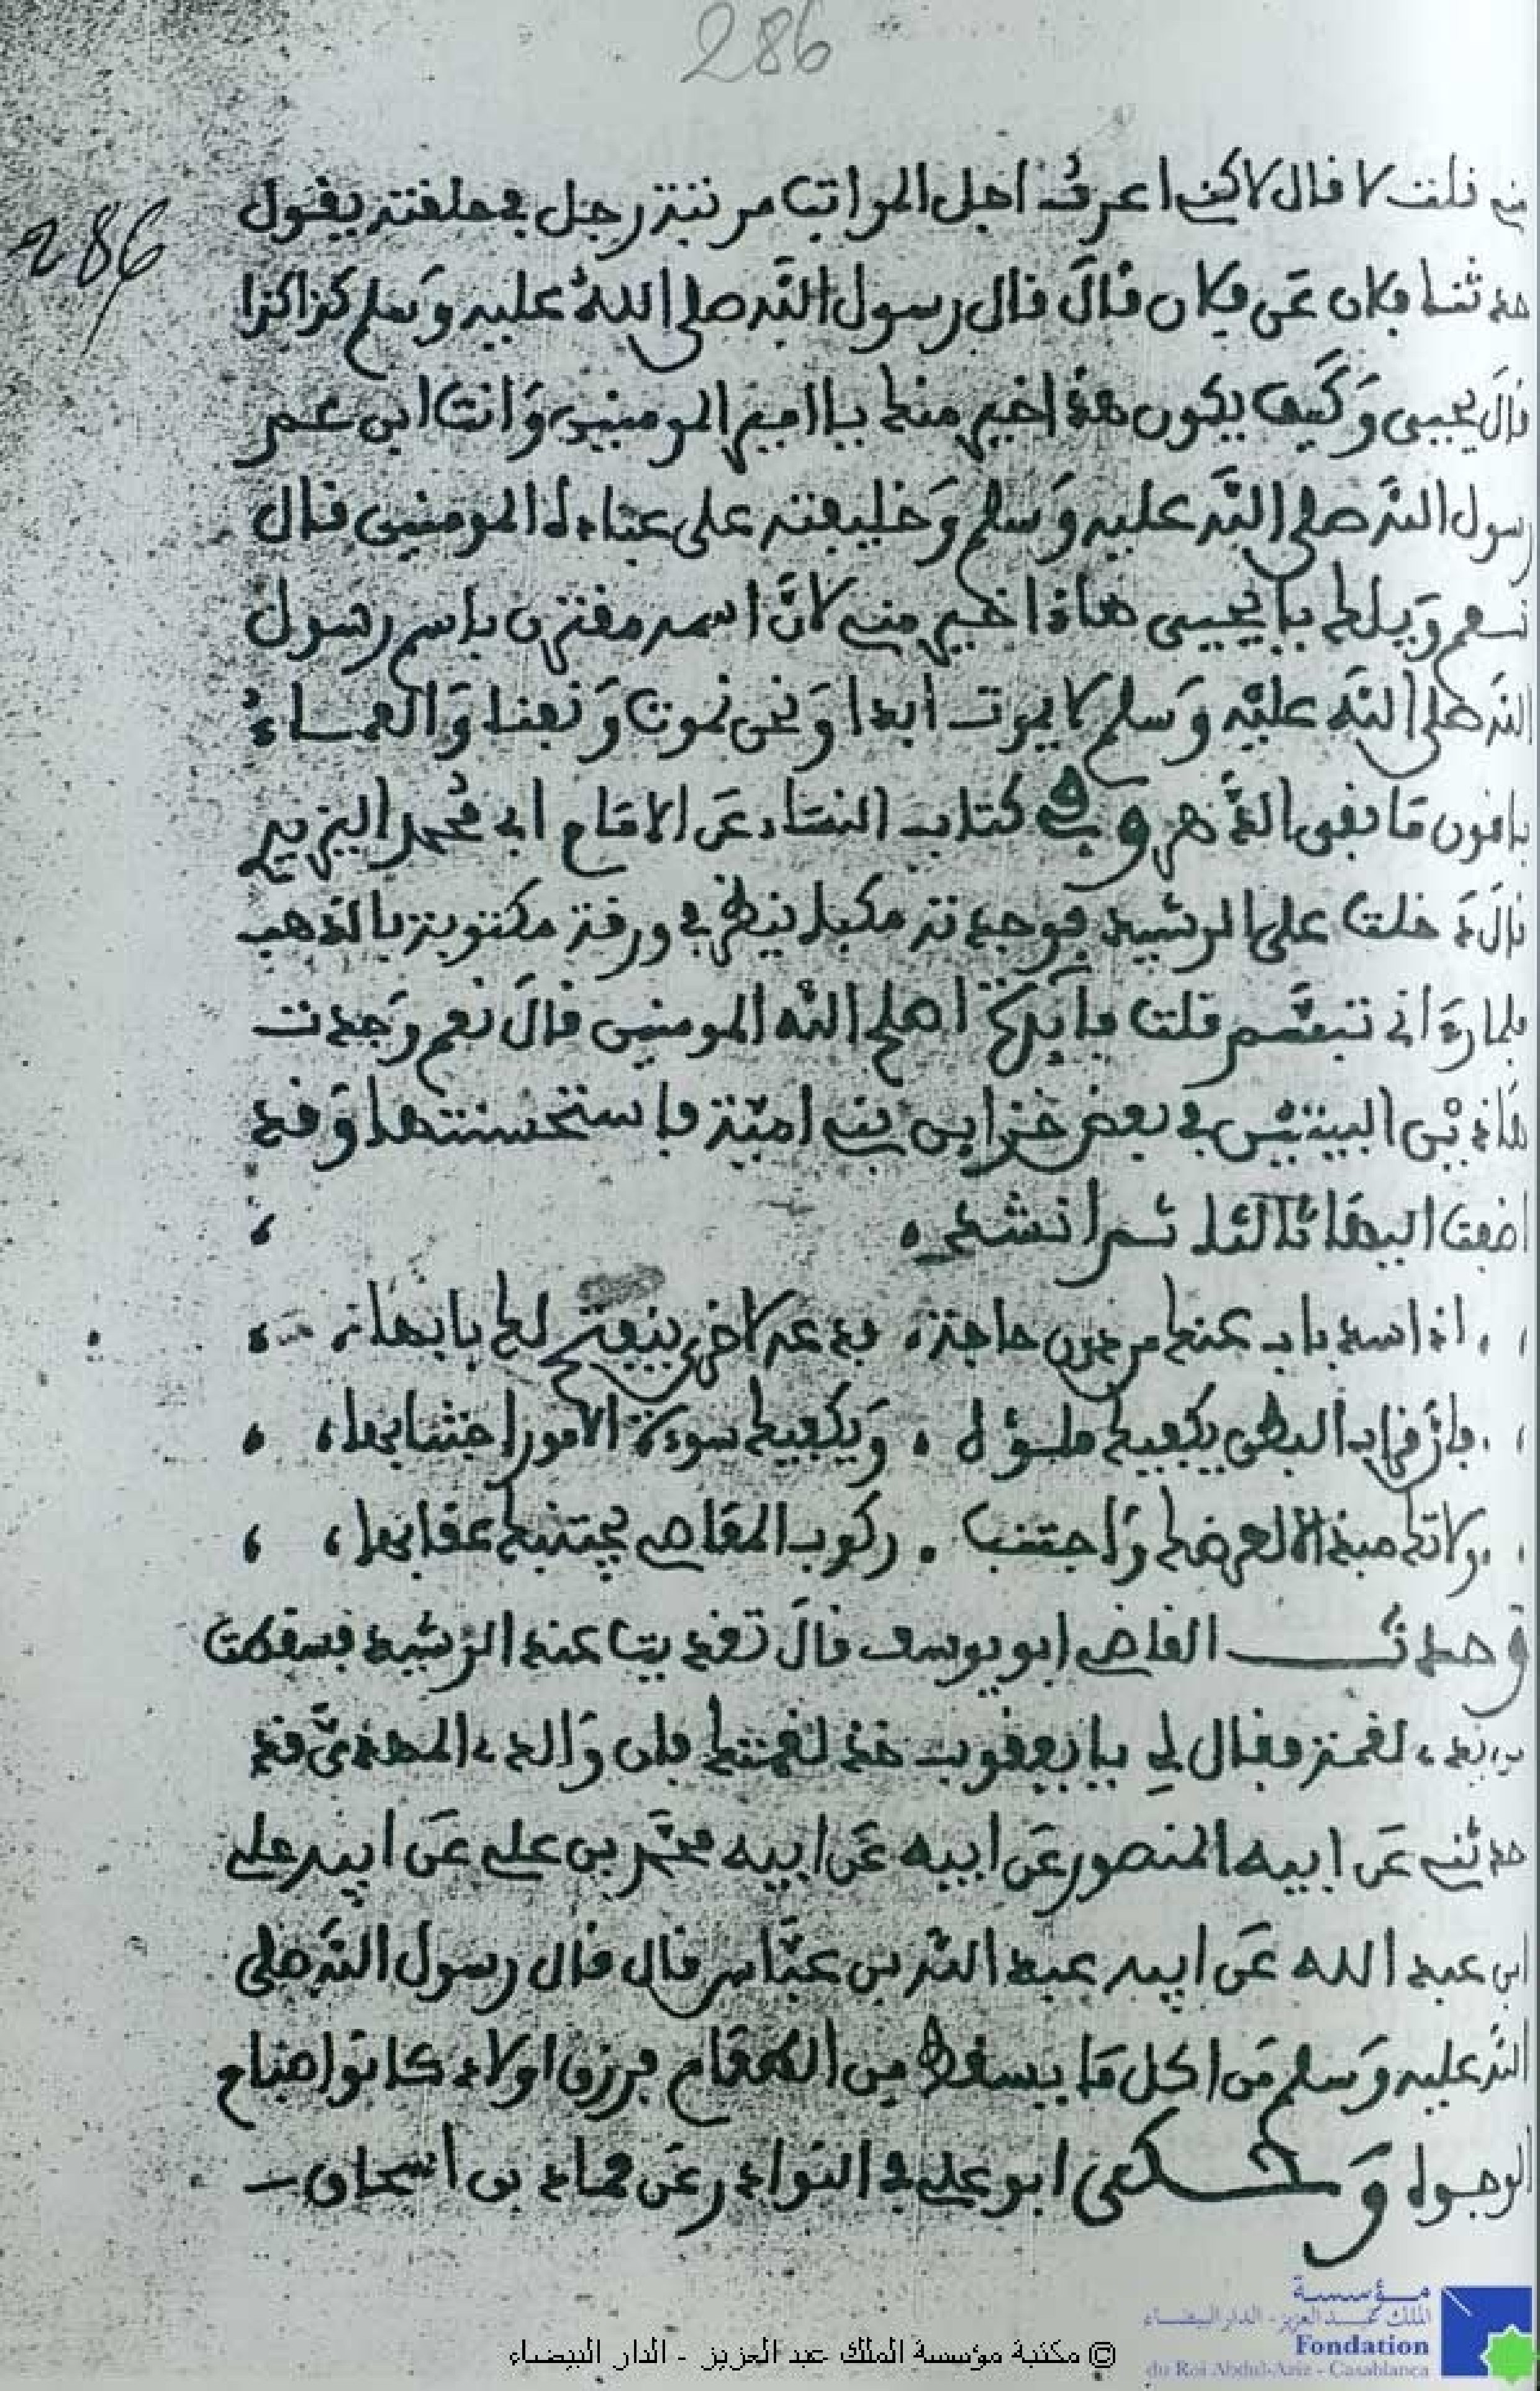 286
286
مني قلت لا قال لاكني اعرف اجل المراتب مرتبة رجل في حلقته يقول
حدثنا فلان عن فلان قال قال رسول الله صلى الله عليه وسلم كذا كذا
قال يحيى وكيف يكون هذا خير منك يا امير المومنين وانت ابن عم
رسول الله صلى الله عليه وسلم وخليفته على عباد المومنين قال
نعم ويلك يا يحيى هاذا خير مني لان اسمه مقترن باسم رسول
الله صلى الله عليه وسلم لا يموت ابدا ونحن نموت ونفنا والعلماء
باقون ما بقى الدهر وفي كتاب عن الامام ابي محمد اليزيدي
قال دخلت على الرشيد فوجدته ينظر في ورقة مكتوبة بالذهب
فلما رءاني تبسم قلت فايدة اصلح الله المومنين قال نعم وجدت
هاذين البيتين في بعض خزاين بني امية فاستحسنتها وقد
اضفت اليهما ثالثا ثم انشد
اذا سد باب عنك من دون حاجة فدعه لاخرى ينفتح لك بابها
فان قراب البطن يكفيك ملؤه ويكفيك سوءة الامور اجتنابها
ولا تك مبذالا لعرضك واجتنب ركوب المعاصي يجتنبك عقابها
وحدث القاضي ابو يوسف قال تغديت عند الرشيد فسقطت
لقمة فقال لي يا يعقوب خذ لقمتك فان والدي المهدي قد
حدثني عن ابيه المنصور عن ابيه عن ابيه محمد بن علي عن ابيه علي
ابن عبد الله عن ابيه عبد الله بن عباس قال قال رسول الله صلى
الله عليه وسلم من اكل ما يسقط من الطعام فرزق اولاد كانوا صباح
الوجوه وحكى ابو علي في النوادر عن حماد بن اسحاق
مؤسسة
الملك عبد العزيز - الدار البيضاء
Fondation
du Roi Abdul-Aziz - Casablanca
© مكتبة مؤسسة الملك عبد العزيز - الدار البيضاء